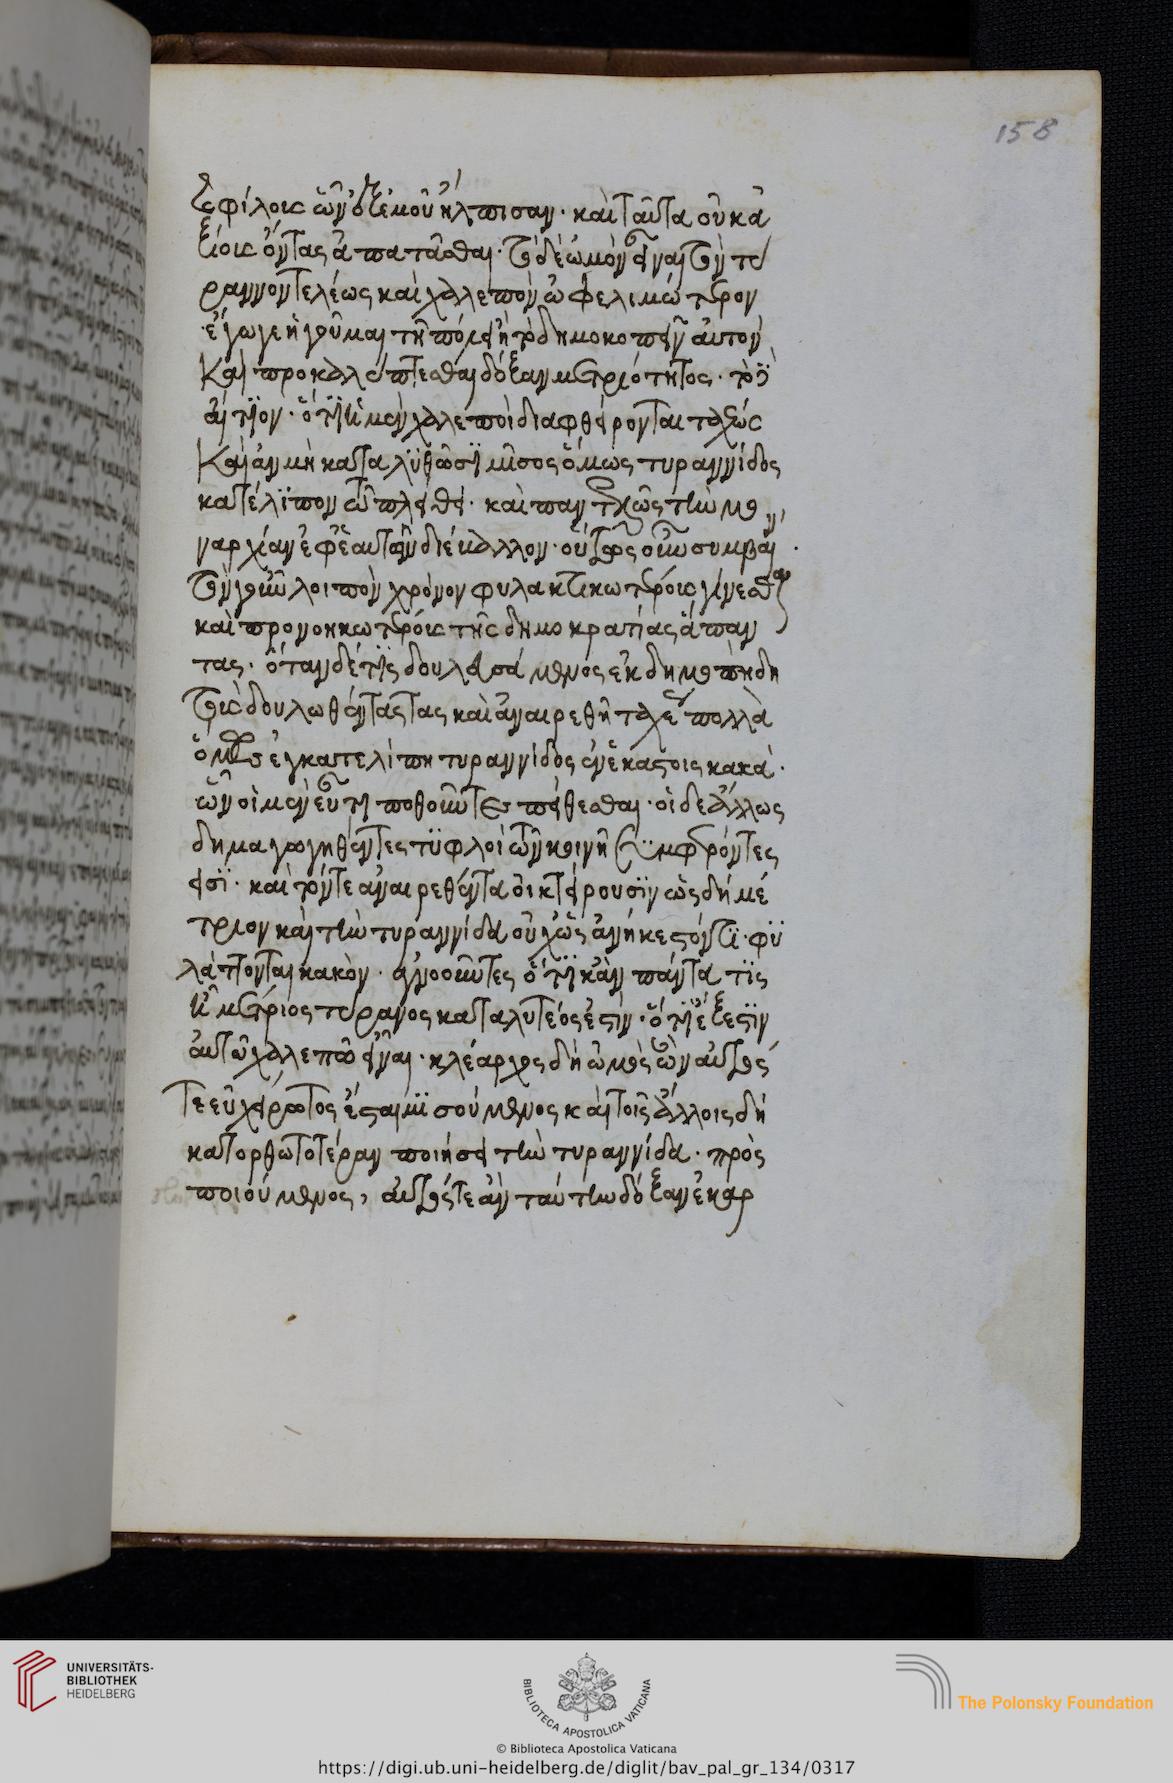 158
ς φίλοις ὧν ἐπ' ἐμοῦ ἤλπισαν· καὶ ταῦτα οὐκ ἀ
ξίοις ὄντας ἀπατᾶσθαι· τὸ δὲ ὠμὸν εἶναι τὸν τύ
ραννον τελέως καὶ χαλεπὸν ὠφελιμώτερον
ἔγωγε ἡγοῦμαι τῇ πόλει ἢ τὸ δημοκοπεῖν αὐτὸν
καὶ προκαλύπτεσθαι δόξαν μετριότητος· τὸ
αἴτϊον· ὅτϊ οἱ μὲν χαλεποὶ διαφθείρονται ταχέως
καὶ ἂν μὴ καταλϋθῶσϊ μῖσος ὅμως τυραννίδος
κατέλϊπον τῷ πλήθει· καὶ παντελῶς τὴν μο
ναρχίαν ἐφ' ἑαυτῶν διέβαλλον· οὕτως οὖν συμβαί
τὸν γοῦν λοιπὸν χρόνον φυλακτικωτέροις γίνεσθαι
καὶ προνοηκωτέροις τῆς δημοκρατίας ἅπαν
τας· ὅταν δέ τϊς δουλωσάμενος ἐκδημοπηδη
τοὺς δουλωθέντας τας καὶ ἀναιρεθῇ ταχὺ πολλὰ
ὅμως ἐγκαταλίπῃ τυραννίδος ἐν ἑκάστοις κακά·
ὧν οἱ μὲν εὖ τι ποθοῦντες πείθεσθαι· οἱ δὲ ἄλλως
δημαγωγηθέντες τϋφλοὶ τῶν κοινῇ συμφερόντες
εἰσϊ· καὶ τόν τε ἀναιρεθέντα οἰκτείρουσϊν ὡς δὴ μέ
τριον καὶ τὴν τυραννίδα οὐχ ὡς ἀνήκεστόν τϊ· φϋ
λάττονται κακὸν· ἀγνοοῦντες ὅτϊ κἂν πάντα τϊς
ᾖ μέτριος τύρανος καταλυτέος ἐστὶν· ὅτϊ ἔξεστϊν
αὐτῷ χαλεπῷ εἶναι· κλέαρχος δὴ ὠμὸς ὢν αὐτός
τε εὐχείρωτος ἔσται μϊσούμενος καὶ τοῖς ἄλλοις δὴ
κατορθωτοτέραν ποιήσει τὴν τυραννίδα· προς
ποιούμενος, αὐτός τε ἂν ταύτην δόξαν ἐκαρ
UNIVERSITÄTS-
BIBLIOTHEK
HEIDELBERG
BIBLIOTECA APOSTOLICA VATICANA
© Biblioteca Apostolica Vaticana
The Polonsky Foundation
https://digi.ub.uni-heidelberg.de/diglit/bav_pal_gr_134/0317